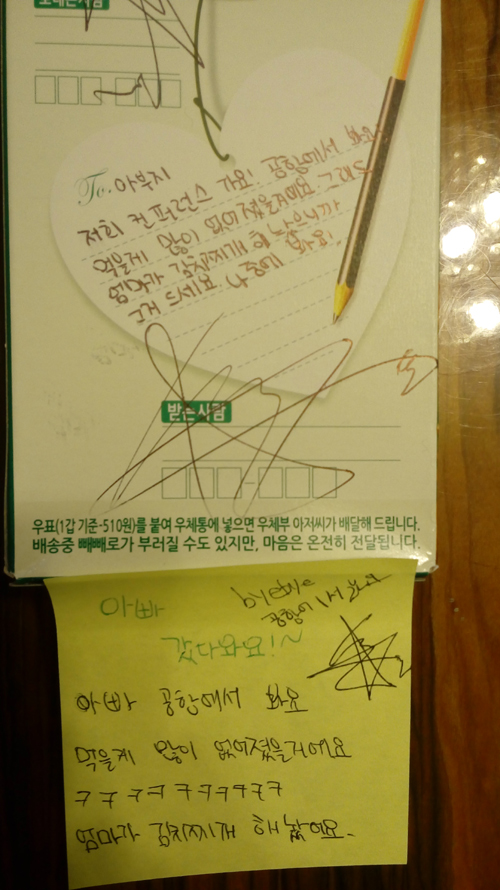 보내는사람
To. 아부지
저희 컨퍼런스 가요! 공항에서 봐요
먹을게 많이 없어졌을거에요 그래도
엄마가 김치찌개 해 놨으니까
그거 드세요 나중에 봐요!
받는사람
우표(1갑 기준-510원)를 붙여 우체통에 넣으면 우체부 아저씨가 배달해 드립니다.
배송중 빼빼로가 부러질 수도 있지만, 마음은 온전히 전달됩니다.
아빠
갔다와요!~
bye bye
공항에서 봐요
아빠 공항에서 봐요
먹을게 많이 없어졌을거에요
ㅋㅋㅋㅋㅋㅋㅋㅋㅋ
엄마가 김치찌개 해 놨어요.